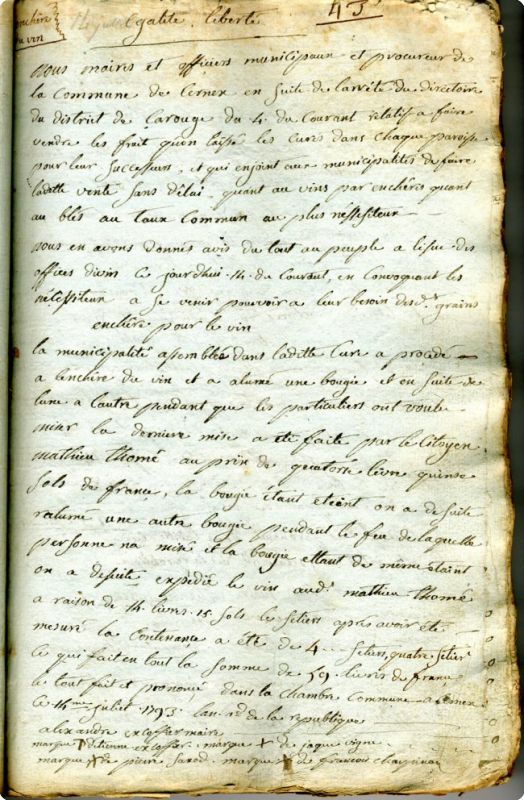 enchère
du vin
Egalité, liberté
43
Nous maires et officiers municipaux et procureur de
la Commune de Cernex en suite de larrêté du directoire
du district de Carouge du 4 du Courant relatif a faire
vendre les fruit quon laissé les Curés dans Chaque paroisse
pour leur Successeurs, et qui enjoint aux municipalités de faire
laditte vente sans délai, quant au vins par enchères quant
au blés au taux Commun au plus néssessiteur
nous en avons donnés avis du tout au peuple a lissue des
offices divin Ce jourdhui 14 du Courant, en Convoquant les
nécessiteux a se venir pourvoir a leur besoin desd.ts grains
enchère pour le vin
la municipalité assemblée dans laditte Cure a procédé
a lenchère du vin et a alumé une bougie et en suite de
lune a lautre pendant que les particuliers ont voulu
mixer la dernière mise a été faite par le Citoyen
mathieu thomé au prix de quatorse livre quinse
sols de france, la bougie étant eteint on a de suite
ralumé une autre bougie pendant le feu de laquelle
personne na misé et la bougie ettant de même etaint
on a desuite expédié le vin aud. mathieu thomé
a raison de 14 livres 15 sols le setiers après avoir été
mesuré la Contenance a été de 4... setiers quatre setier
Ce qui fait en tout la somme de 59 livres de france
le tout fait et prononcé dans la Chambre Commune a Cernex
le 14me juliet 1793 lan 2d de la république
alexandre maire
marque de etienne marque + de jaque vigne
marque + de pierre marque + de françois